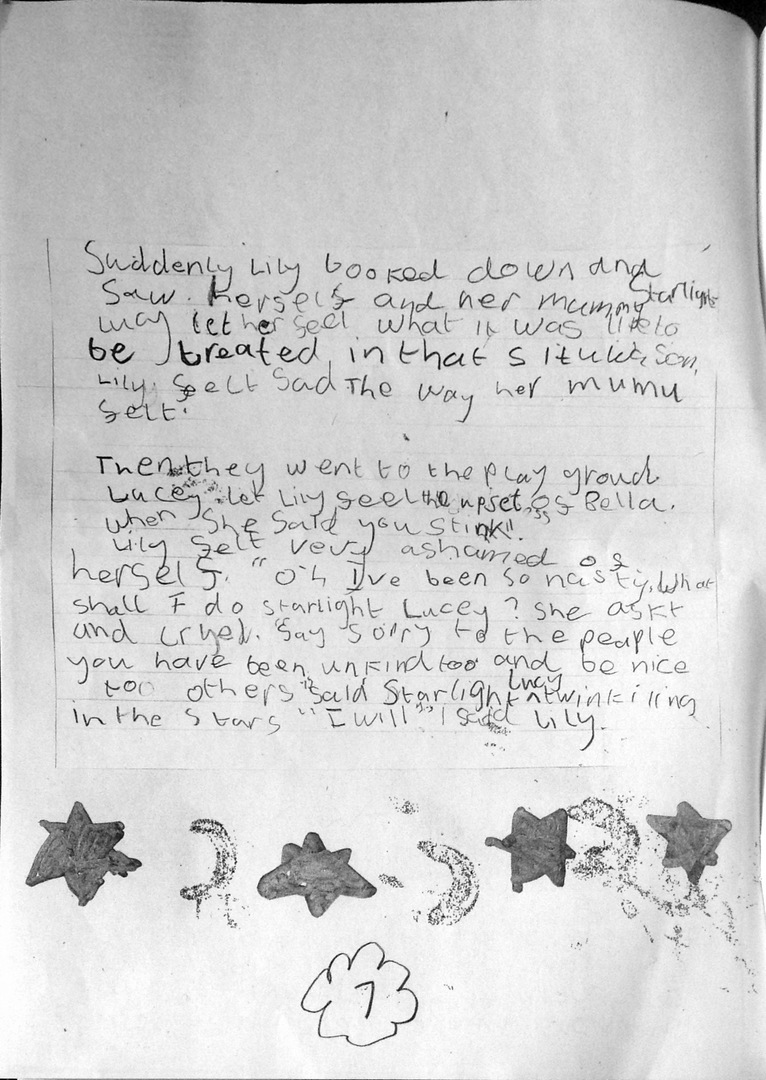 Suddenly Lily looked down and
saw. herself and her mummy Starlight
may let her feel what it was like to
be treated in that situation,
Lily. felt sad The way her mumu
felt.
Then they went to the play groud
Lucey let Lily feel the upset of Bella.
when she said you stink!!
Lily felt very ashamed of
herself. "Oh I've been so nasty, what
shall I do starlight Lucey? she askt
and cryed. "Say sorry to the people
you have been unkind too and be nice
too others" said Starlight Lucy twinkiling
in the stars "I will" said Lily.
7